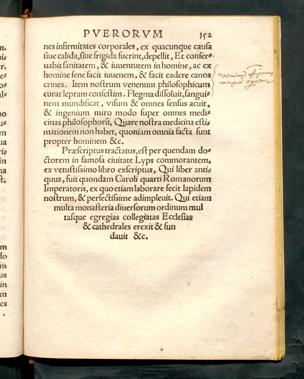 PVERORVM 152
nes infirmitates corporales, ex quacunque causa
siue calida, siue frigida fuerint, depellit, Et conser⸗
uabit sanitatem, & iuuentutem in homine, ac ex
homine sene facit iuuenem, & facit cadere canos
crines. Item nostrum venenum philosophicum
curat lepram confectim. Flegma dissoluit, sangui⸗
nem mundificat, visum & omnes sensus acuit,
& ingenium miro modo super omnes medi⸗
cinas philosophorū, Quare nostra medicina esti⸗
mationem non habet, quoniam omnia facta sunt
propter hominem &c.
Præscriptus tractatus, est per quendam do⸗
ctorem in famosa ciuitate Lyps commorantem,
ex vetustissimo libro exscriptus, Qui liber anti⸗
quus, fuit quondam Caroli quarti Romanorum
Imperatoris, ex quo etiam laborare fecit lapidem
nostrum, & perfectissime adimpleuit. Qui etiam
multa monasteria diuersorum ordinum mul
tasque egregias collegiatas Ecclesias
& cathedrales erexit & fun
dauit &c.